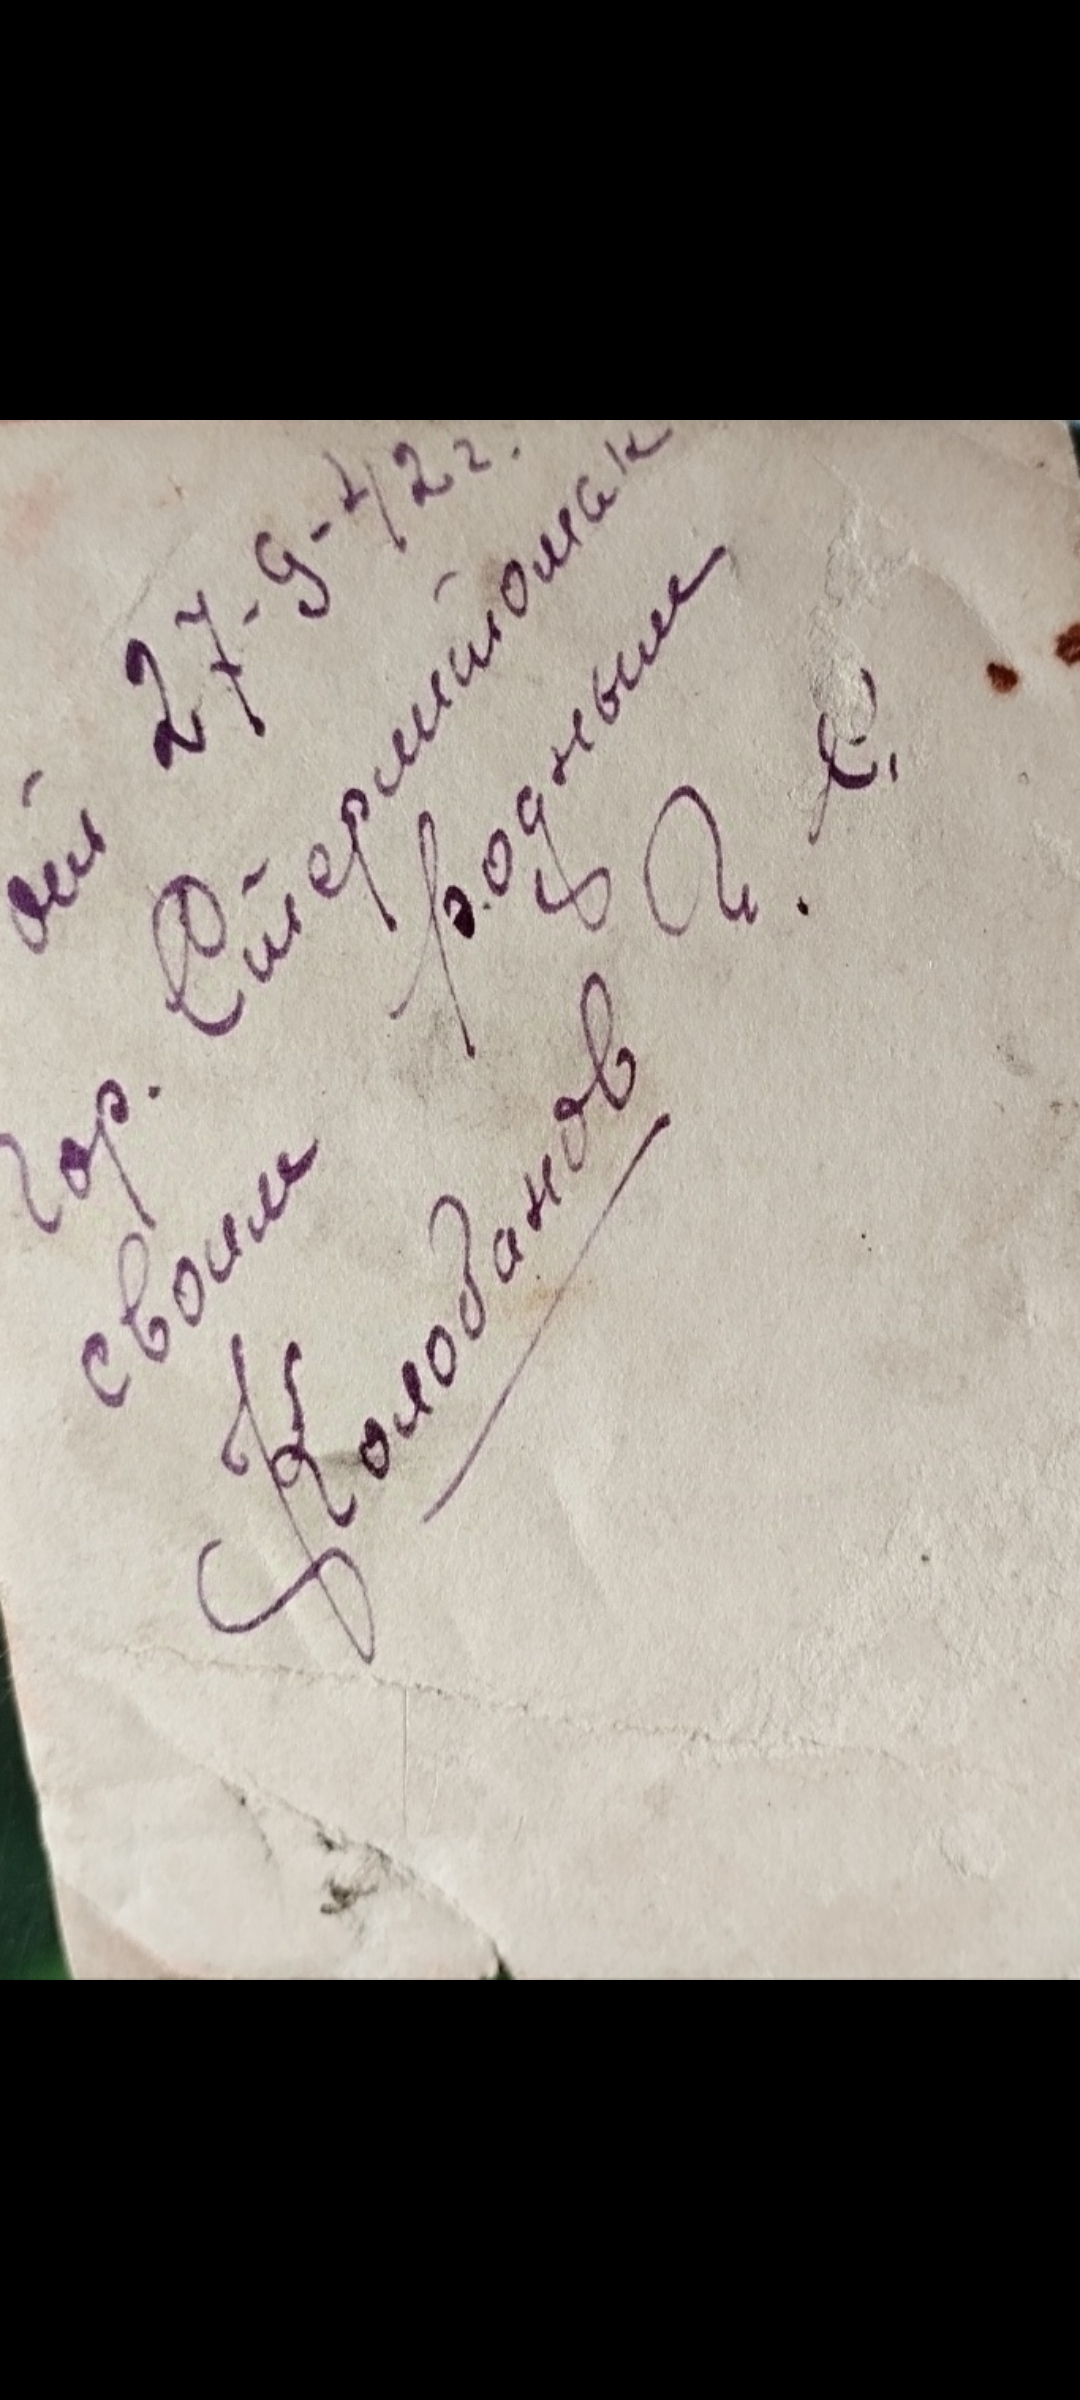 от 27-9-42 г.
Гор. Стермитомак
своим родным
Колобанов П. С.